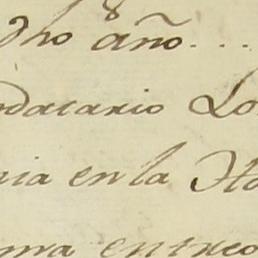 dho año...
odatario Lo
nia en la Ha
ma entreo